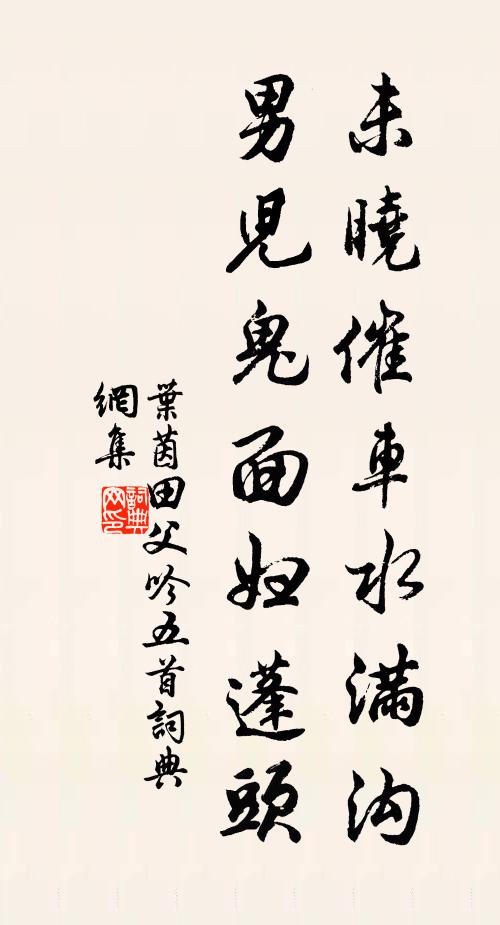 未曉催車水满沟
男兒鬼面妇蓬頭
葉茵田父吟五首詞典
網集
詞典网印